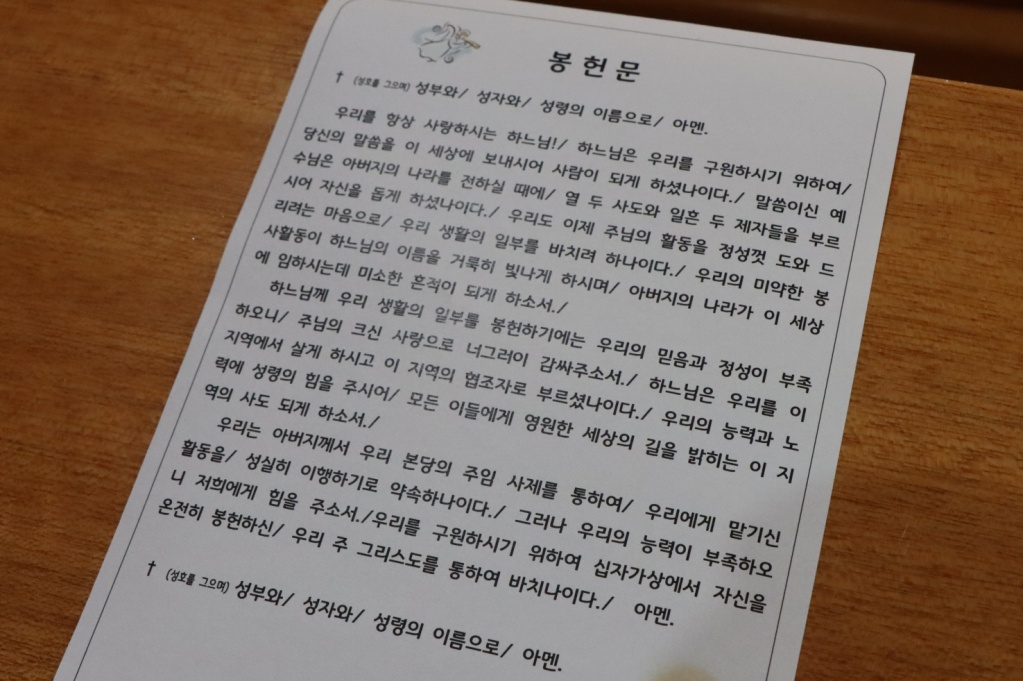 봉헌문
† (성호를 그으며) 성부와/ 성자와/ 성령의 이름으로/ 아멘.
우리를 항상 사랑하시는 하느님!/ 하느님은 우리를 구원하시기 위하여/
당신의 말씀을 이 세상에 보내시어 사람이 되게 하셨나이다./ 말씀이신 예
수님은 아버지의 나라를 전하실 때에/ 열 두 사도와 일흔 두 제자들을 부르
시어 자신을 돕게 하셨나이다./ 우리도 이제 주님의 활동을 정성껏 도와 드
리려는 마음으로/ 우리 생활의 일부를 바치려 하나이다./ 우리의 미약한 봉
사활동이 하느님의 이름을 거룩히 빛나게 하시며/ 아버지의 나라가 이 세상
에 임하시는데 미소한 흔적이 되게 하소서./
하느님께 우리 생활의 일부를 봉헌하기에는 우리의 믿음과 정성이 부족
하오니/ 주님의 크신 사랑으로 너그러이 감싸주소서./ 하느님은 우리를 이
지역에서 살게 하시고 이 지역의 협조자로 부르셨나이다./ 우리의 능력과 노
력에 성령의 힘을 주시어/ 모든 이들에게 영원한 세상의 길을 밝히는 이 지
역의 사도 되게 하소서./
우리는 아버지께서 우리 본당의 주임 사제를 통하여/ 우리에게 맡기신
활동을/ 성실히 이행하기로 약속하나이다./ 그러나 우리의 능력이 부족하오
니 저희에게 힘을 주소서./우리를 구원하시기 위하여 십자가상에서 자신을
온전히 봉헌하신/ 우리 주 그리스도를 통하여 바치나이다./ 아멘.
† (성호를 그으며) 성부와/ 성자와/ 성령의 이름으로/ 아멘.